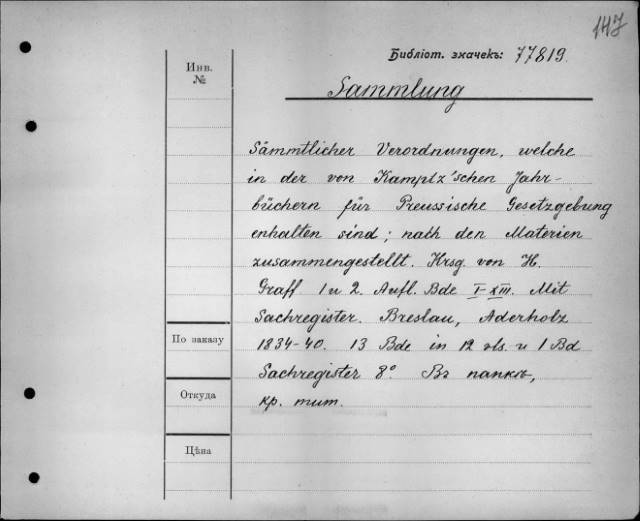 147
Библіот. значекъ: 77819.
Инв.
№
Sammlung
Sämmtlicher Verordnungen, welche
in der von Kamptz'schen Jahr-
büchern für Preussische Gesetzgebung
enhalten sind; nach den Materien
zusammengestellt. Hrsg. von H.
Graff 1 u 2. Aufl. Bde I-XIII. Mit
Sachregister. Breslau, Aderholz
1834-40. 13 Bde in 12 vls. u 1 Bd
Sachregister 8° Въ папкѣ,
кр. тит.
По заказу
Откуда
Цѣна